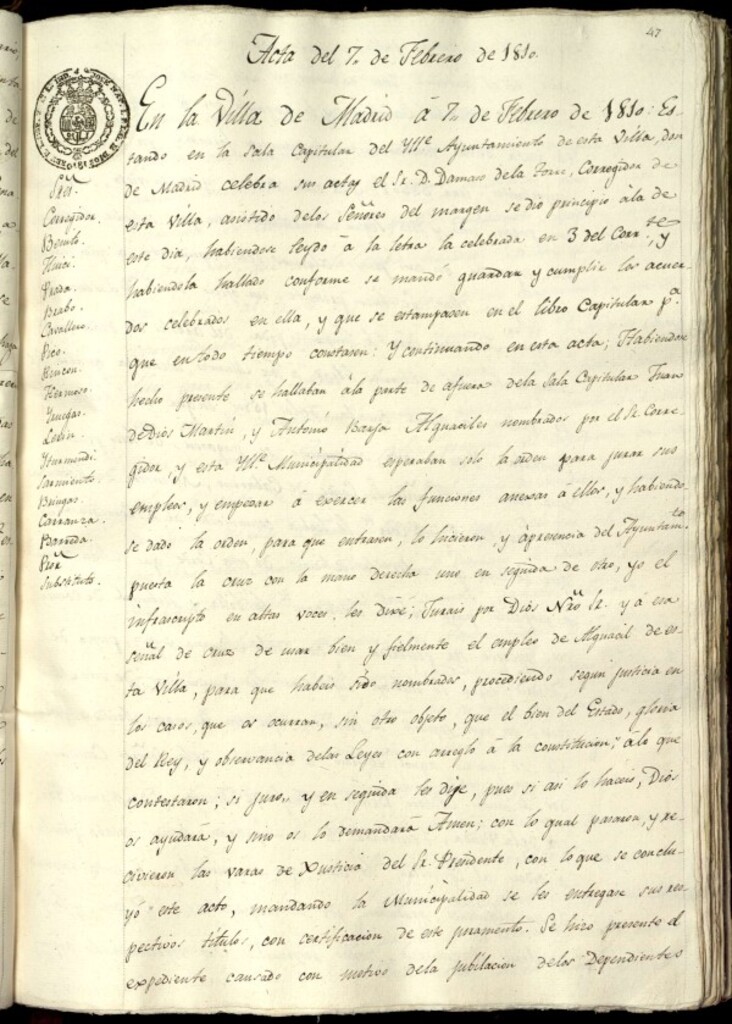 47
Acta del 7„ de Febrero de 1810.
En la Villa de Madrid á 7„ de Febrero de 1810: Es-
tando en la Sala Capitular del Yll.e Ayuntamiento de esta Villa, don
de Madrid celebra sus actas el Sr. D. Damaso de la Torre, Corregidor de
esta Villa, asistido delos Señores del margen se dió principio ála de
este dia, habiendose leydo á la letra la celebrada en 3 del Corr.te, y
habiendola hallado conforme se mandó guardar y cumplir los acuer-
dos celebrados en ella, y que se estampasen en el libro Capitular p.a
que en todo tiempo constasen: Y continuando en esta acta; Habiendose
hecho presente se hallaban ála parte de afuera dela Sala Capitular Juan
de Dios Martin, y Antonio Barja Alguaciles nombrados por el Sr. Corre-
gidor, y esta Yll.e Municipalidad esperaban solo la orden para jurar sus
empleos, y empezar á exercer las funciones anexas á ellos, y habiendo-
se dado la orden, para que entrasen, lo hicieron y ápresencia del Ayuntam.to
puesta la cruz con la mano derecha uno en seguida de otro, yo el
infrascripto en altas voces, les dixé; Jurais por Dios Nrõ Sr. y á esa
señal de cruz de usar bien y fielmente el empleo de Alguacil de es-
ta Villa, para que habeis sido nombrados, procediendo segun justicia en
los casos, que os ocurran, sin otro objeto, que el bien del Estado, gloria
del Rey, y observancia delas Leyes con arreglo á la constitucion;" álo que
contestaron; si juro„ y en seguida les dije, pues si asi lo haceis, Dios
os ayudará, y sino os lo demandará Amen; con lo qual pasaron, y re-
civieron las varas de Justicia del Sr. Presidente, con lo que se conclu-
yó este acto, mandando la Municipalidad se les entregase sus res-
pectivos titulos, con certificacion de este juramento. Se hizo presente el
expediente causado con motivo dela jubilacion delos Dependientes
Sres.
Corregidor.
Benito.
Huici.
Prada.
Brabo.
Cavallero.
Pico.
Rincon.
Hermoso.
Leon.
Yturmendi.
Sarmiento.
Bringas.
Carranza.
Barreda.
Pror
Substituto.